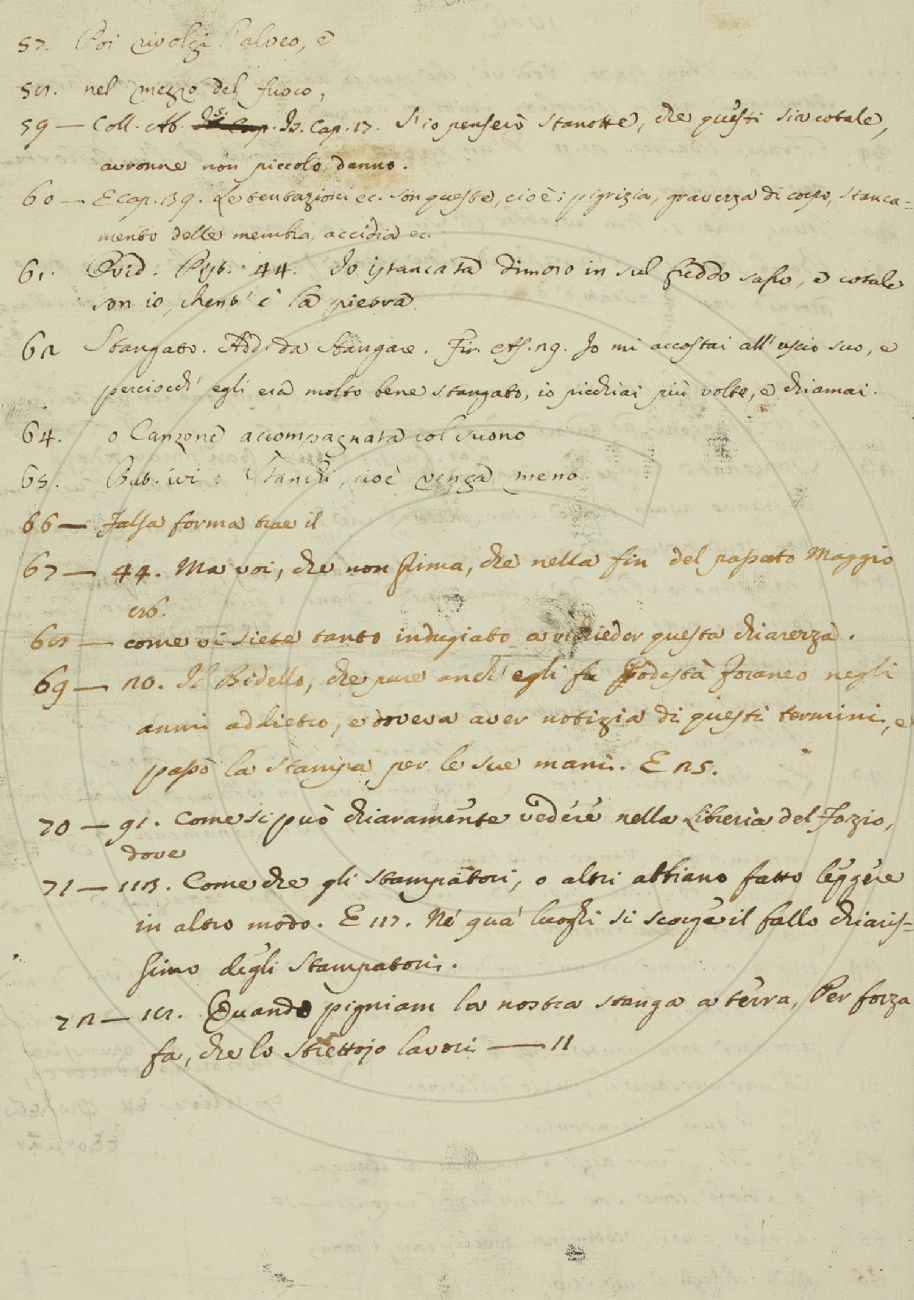 57. Poi rivolgi l'alveo, e
58. nel mezzo del fuoco,
59 — Coll. Ab. Is. Cap. 17. S'io penserò stanotte, che questi sia cotale,
avronne non piccolo danno.
60 — E cap. 39. Le tentazioni ec. son queste, cioè: pigrizia, gravezza di corpo, stanca=
mento delle membra, accidia ec.
61. Ovid. Pist. 44. Io istancata dimoro in sul freddo sasso, e cotale
son io, chent' è la pietra.
62 Stangato. Add. da Stangare. Fir. As. 29. Io mi accostai all'uscio suo, e
perciocch' egli era molto bene stangato, io picchiai più volte, e chiamai.
64. o Canzone accompagnata col suono
65. But. ivi: Stanchi, cioè venga meno
66 — Falsa forma trae il
67 — 44. Ma voi, che non prima, che nella fin del passato Maggio
68 — come vi siete tanto indugiato a richieder questa chiarezza.
69 — 20. Il Bidello, che pure anch' egli fu Podestà Foraneo negli
anni addietro, e doveva aver notizia di questi termini, e
passò la stampa per le sue mani. E 25.
70 — 91. Come si può chiaramente vedere nella Libreria del Fozio,
dove
71 — 113. Come che gli stampatori, o altri abbiano fatto leggere
in altro modo. E 117. Né qua' luoghi si scorge il fallo chiaris=
simo degli Stampatori.
72 — 12. Quando pigniam la nostra stanga a terra, Per forza
fa, che lo strettojo lavori — 11